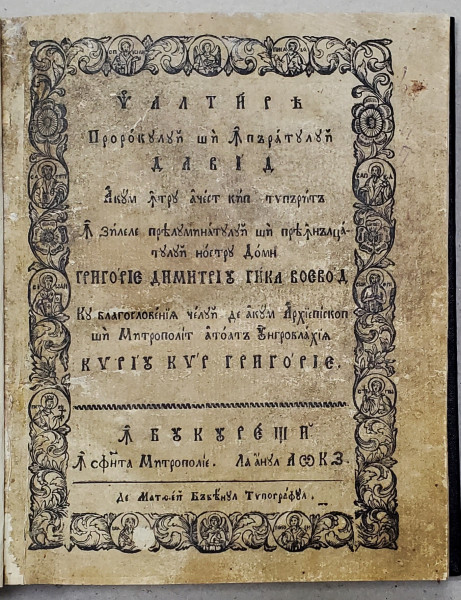 ѰАЛТИ́РѢ
Проро́кулꙋй шѝ ꙟпъра́тулꙋй
ДАВІ́Д
Акꙋ́м ꙟ́тру аче́ст кип типъри́т
Ꙟ зи́леле прѣлꙋмина́тулꙋй шѝ прѣꙟнълца́
тулꙋй но́стру До́мн
ГРИГО́РІЕ ДИМИ́ТРІꙊ ГИ́КА ВОЕВО́Д
Кꙋ благослове́нїѧ че́лꙋй де акꙋ́м Архїепі́скоп
шѝ Митрополи́т а то́лтъ Ꙋнгровла́хїѧ
КУ́РІꙊ КѴР ГРИГО́РІЕ.
Ꙟ БꙊКꙊРЕ́ЩЙ
Ꙟ сфи́нта Митропо́ліе. Ла а́нул АѠКЗ.
Де Матѳе́й Бъбѣ́нул Типогра́фул.